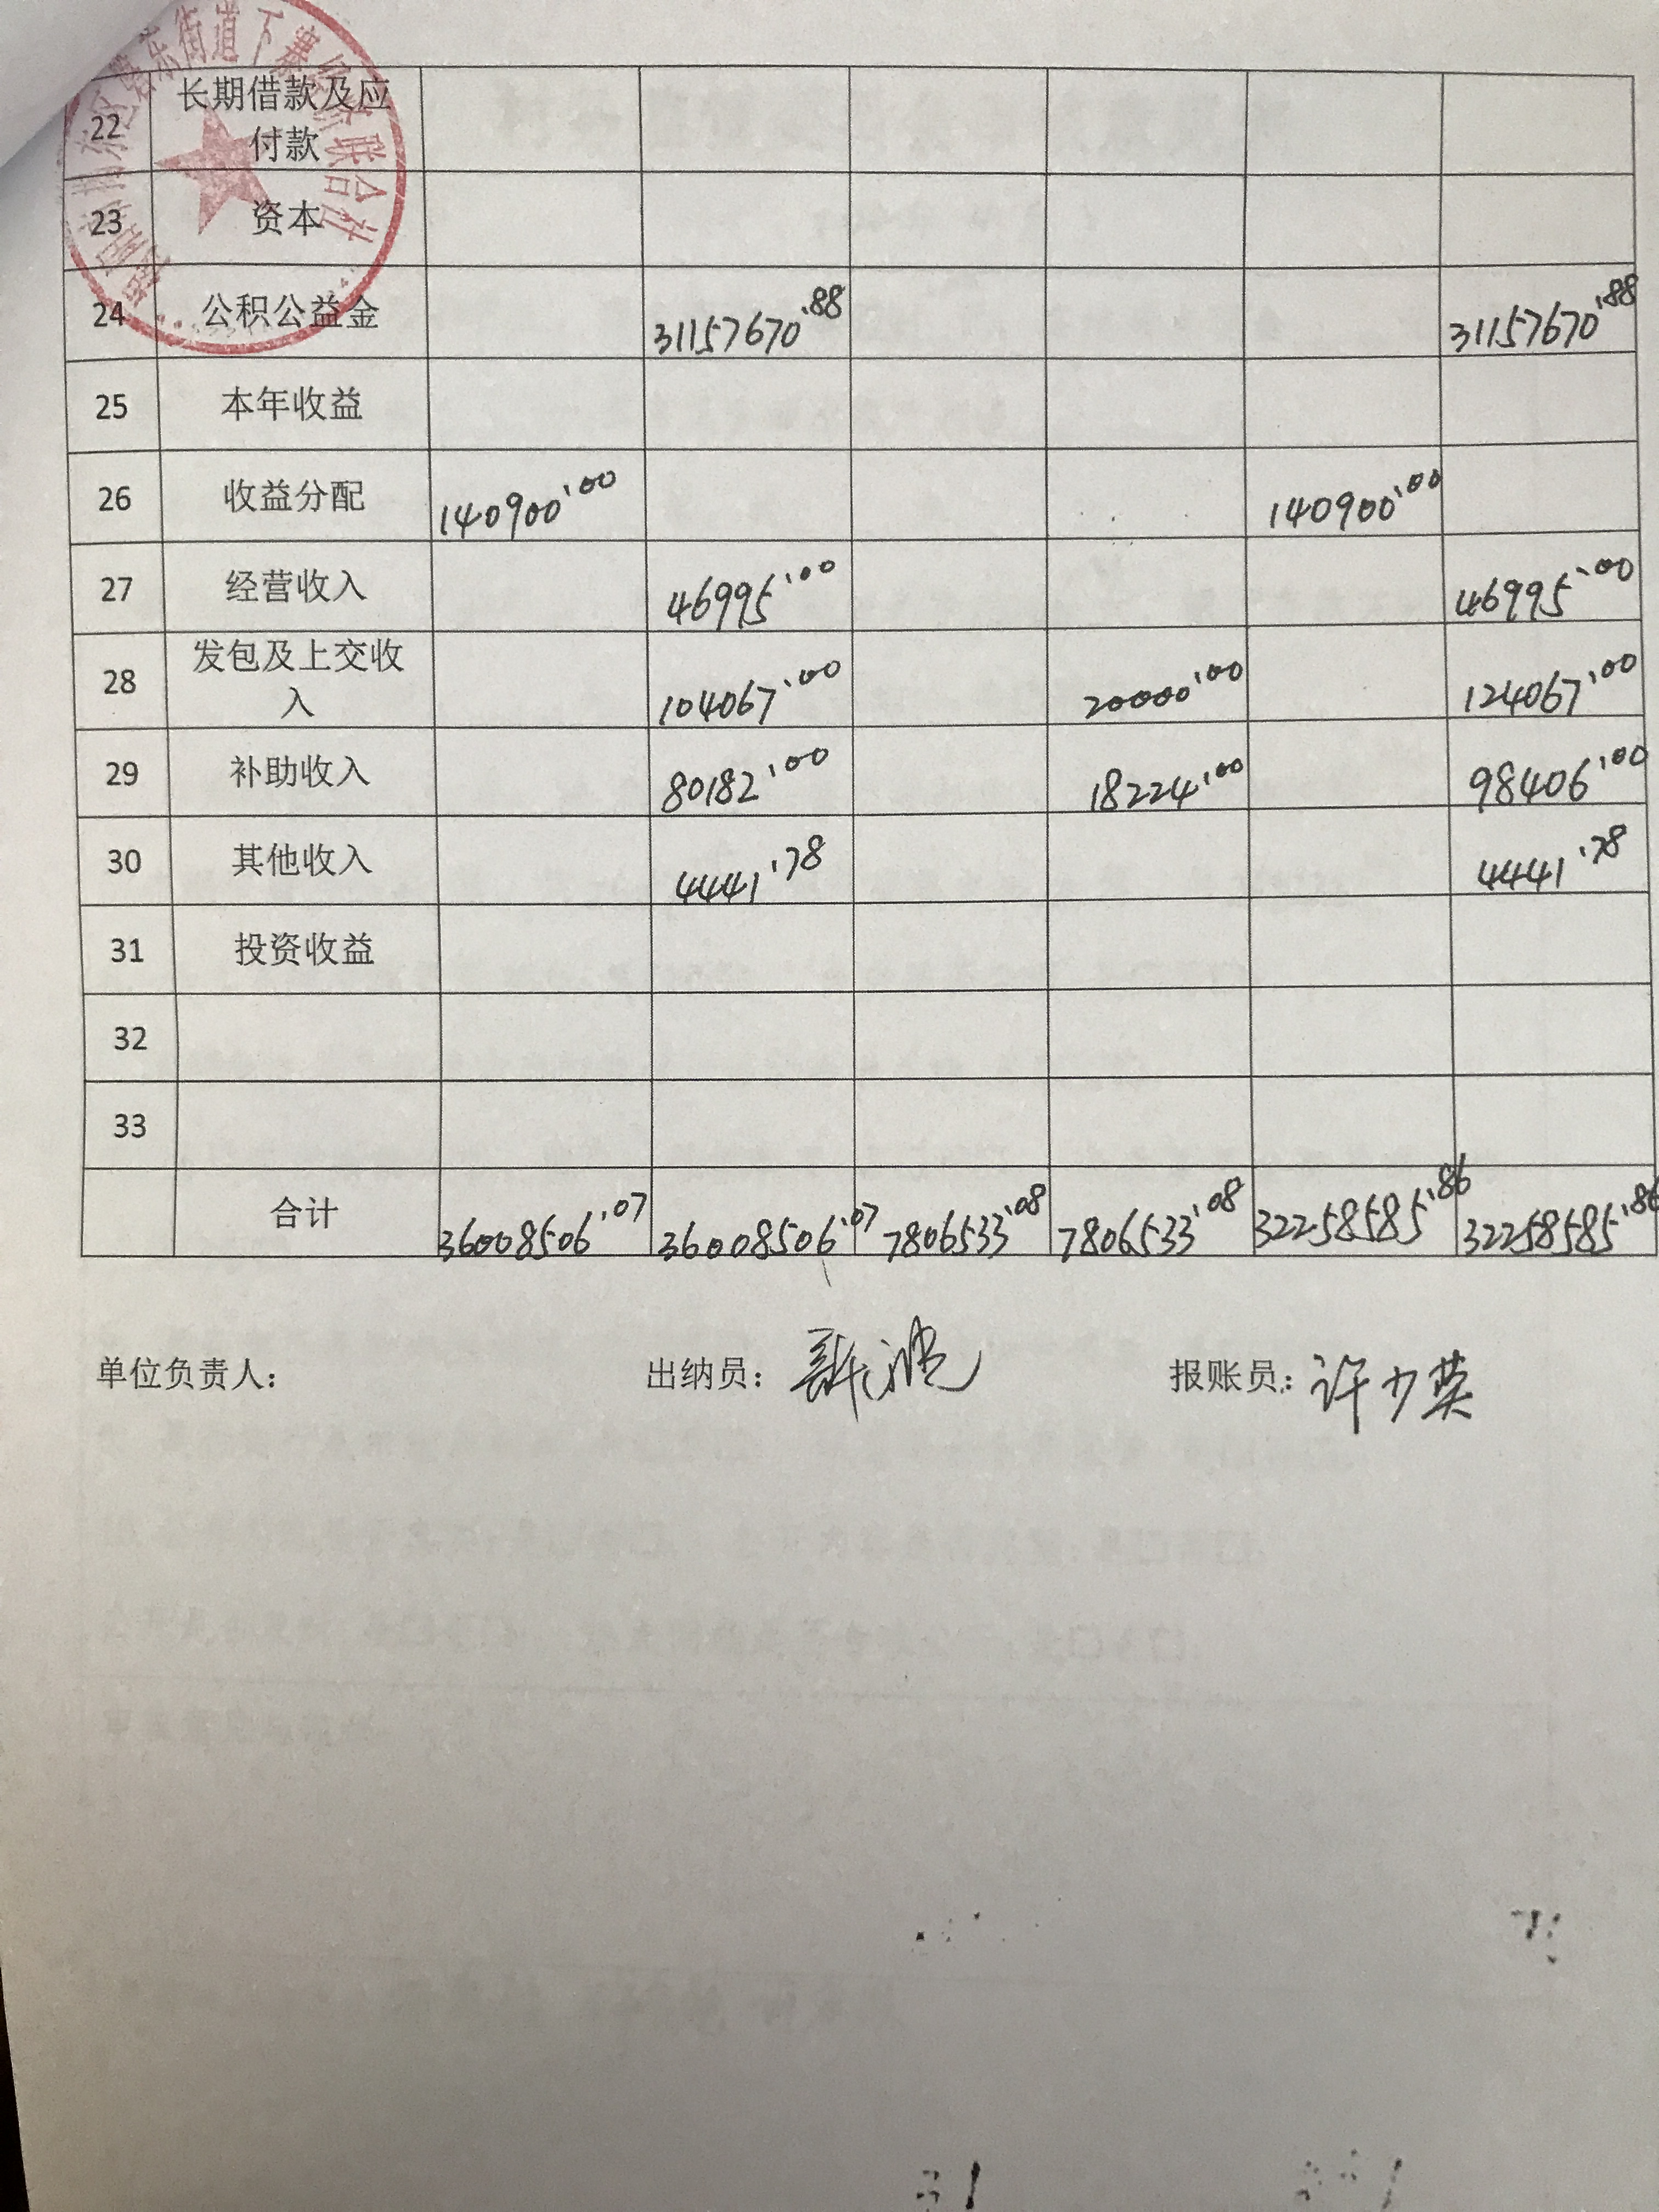 东街道下寨经济联合社
22 长期借款及应
付款
23 资本
24 公积公益金 31157670.88 31157670.88
25 本年收益
26 收益分配 140900.00 140900.00
27 经营收入 46995.00 46995.00
28 发包及上交收
入 104067.00 20000.00 124067.00
29 补助收入 80182.00 18224.00 98406.00
30 其他收入 4441.78 4441.78
31 投资收益
32
33
合计 36008506.07 36008506.07 7806533.08 7806533.08 32258585.86 32258585.86
单位负责人： 出纳员： 报账员：许少英